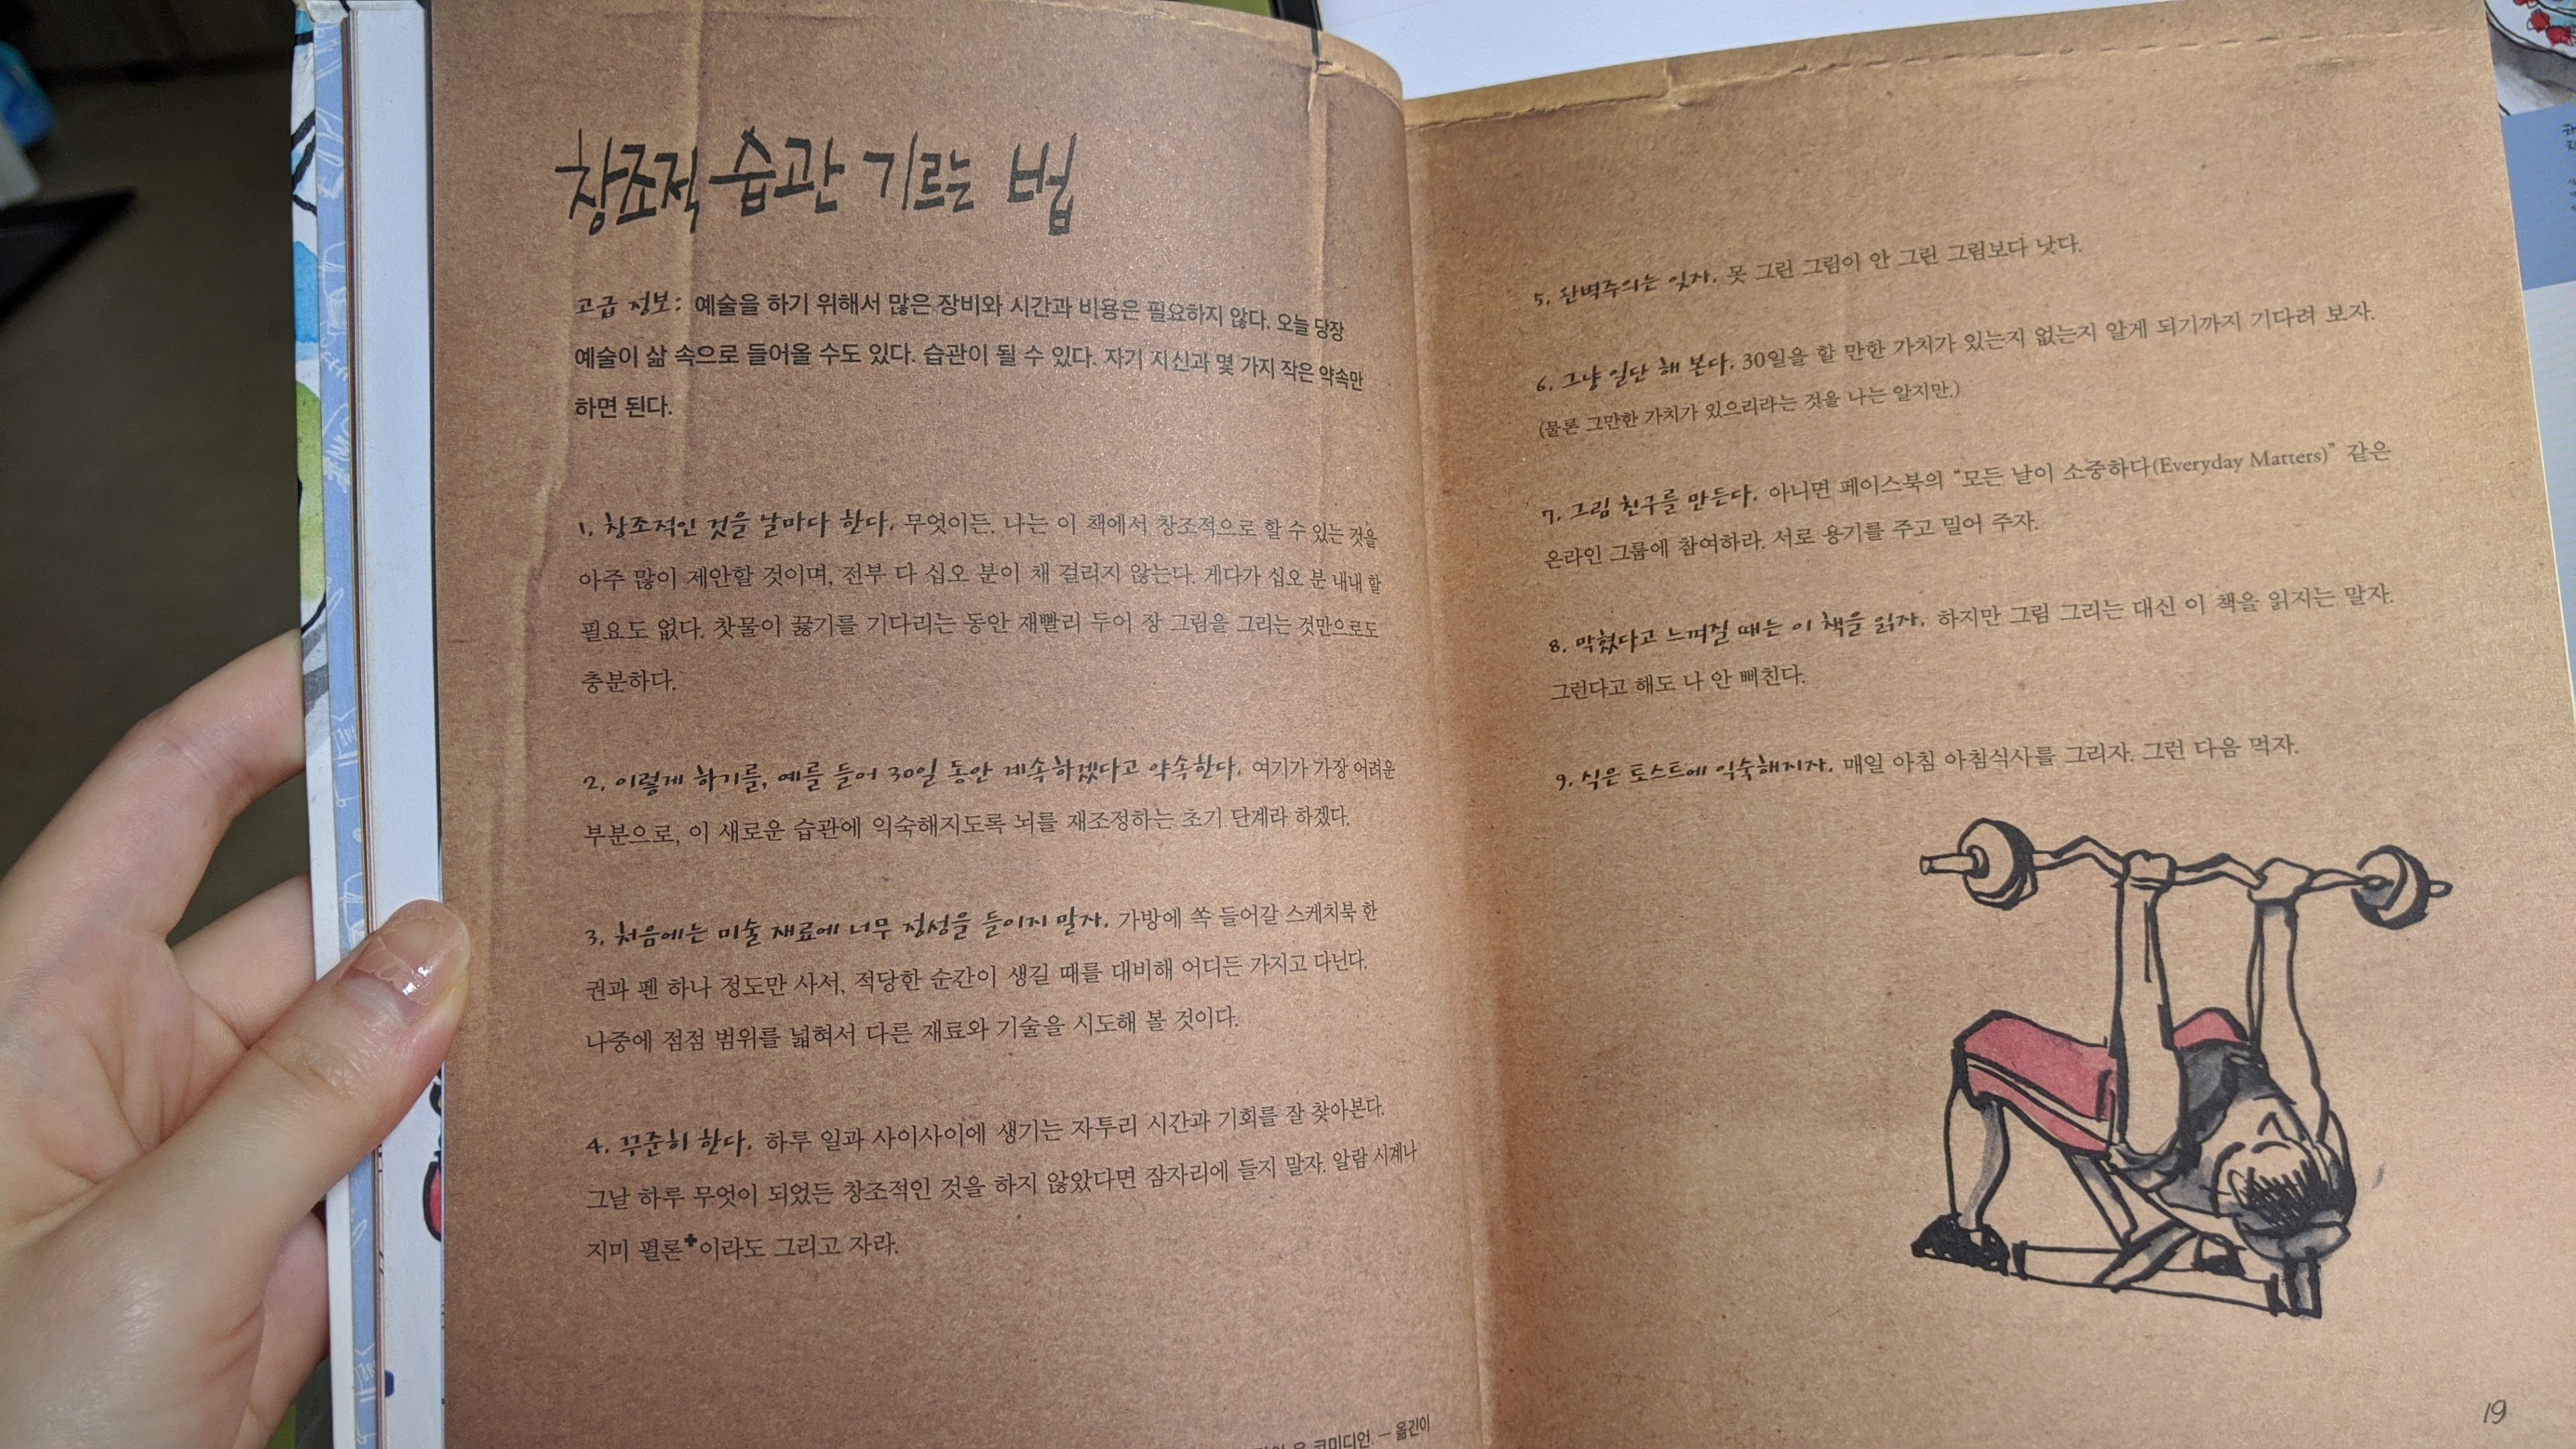 창조적 습관 기르는 법
고급 정보: 예술을 하기 위해서 많은 장비와 시간과 비용은 필요하지 않다. 오늘 당장
예술이 삶 속으로 들어올 수도 있다. 습관이 될 수 있다. 자기 자신과 몇 가지 작은 약속만
하면 된다.
1. 창조적인 것을 날마다 한다. 무엇이든. 나는 이 책에서 창조적으로 할 수 있는 것을
아주 많이 제안할 것이며, 전부 다 십오 분이 채 걸리지 않는다. 게다가 십오 분 내내 할
필요도 없다. 찻물이 끓기를 기다리는 동안 재빨리 두어 장 그림을 그리는 것만으로도
충분하다.
2. 이렇게 하기를, 예를 들어 30일 동안 계속하겠다고 약속한다. 여기가 가장 어려운
부분으로, 이 새로운 습관에 익숙해지도록 뇌를 재조정하는 초기 단계라 하겠다.
3. 처음에는 미술 재료에 너무 정성을 들이지 말자. 가방에 쏙 들어갈 스케치북 한
권과 펜 하나 정도만 사서, 적당한 순간이 생길 때를 대비해 어디든 가지고 다닌다.
나중에 점점 범위를 넓혀서 다른 재료와 기술을 시도해 볼 것이다.
4. 꾸준히 한다. 하루 일과 사이사이에 생기는 자투리 시간과 기회를 잘 찾아본다.
그날 하루 무엇이 되었든 창조적인 것을 하지 않았다면 잠자리에 들지 말자. 알람 시계나
지미 펄론✚이라도 그리고 자라.
코미디언. — 옮긴이
5. 완벽주의는 잊자. 못 그린 그림이 안 그린 그림보다 낫다.
6. 그냥 일단 해 본다. 30일을 할 만한 가치가 있는지 없는지 알게 되기까지 기다려 보자.
(물론 그만한 가치가 있으리라는 것을 나는 알지만.)
7. 그림 친구를 만든다. 아니면 페이스북의 “모든 날이 소중하다(Everyday Matters)” 같은
온라인 그룹에 참여하라. 서로 용기를 주고 밀어 주자.
8. 막혔다고 느껴질 때는 이 책을 읽자. 하지만 그림 그리는 대신 이 책을 읽지는 말자.
그런다고 해도 나 안 삐친다.
9. 식은 토스트에 익숙해지자. 매일 아침 아침식사를 그리자. 그런 다음 먹자.
19